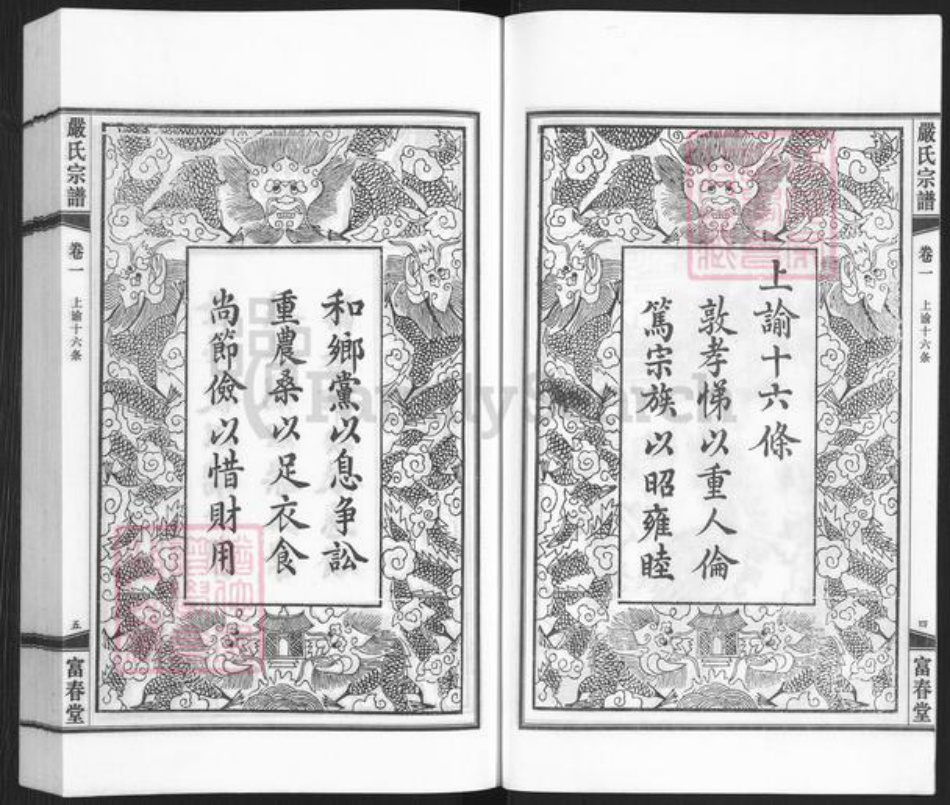 嚴氏宗譜
卷一
上諭十六条
四
富春堂
上諭十六條
敦孝悌以重人倫
篤宗族以昭雍睦
和鄉黨以息争訟
重農桑以足衣食
尚節儉以惜財用
嚴氏宗譜
卷一
上諭十六条
五
富春堂
FamilySearch